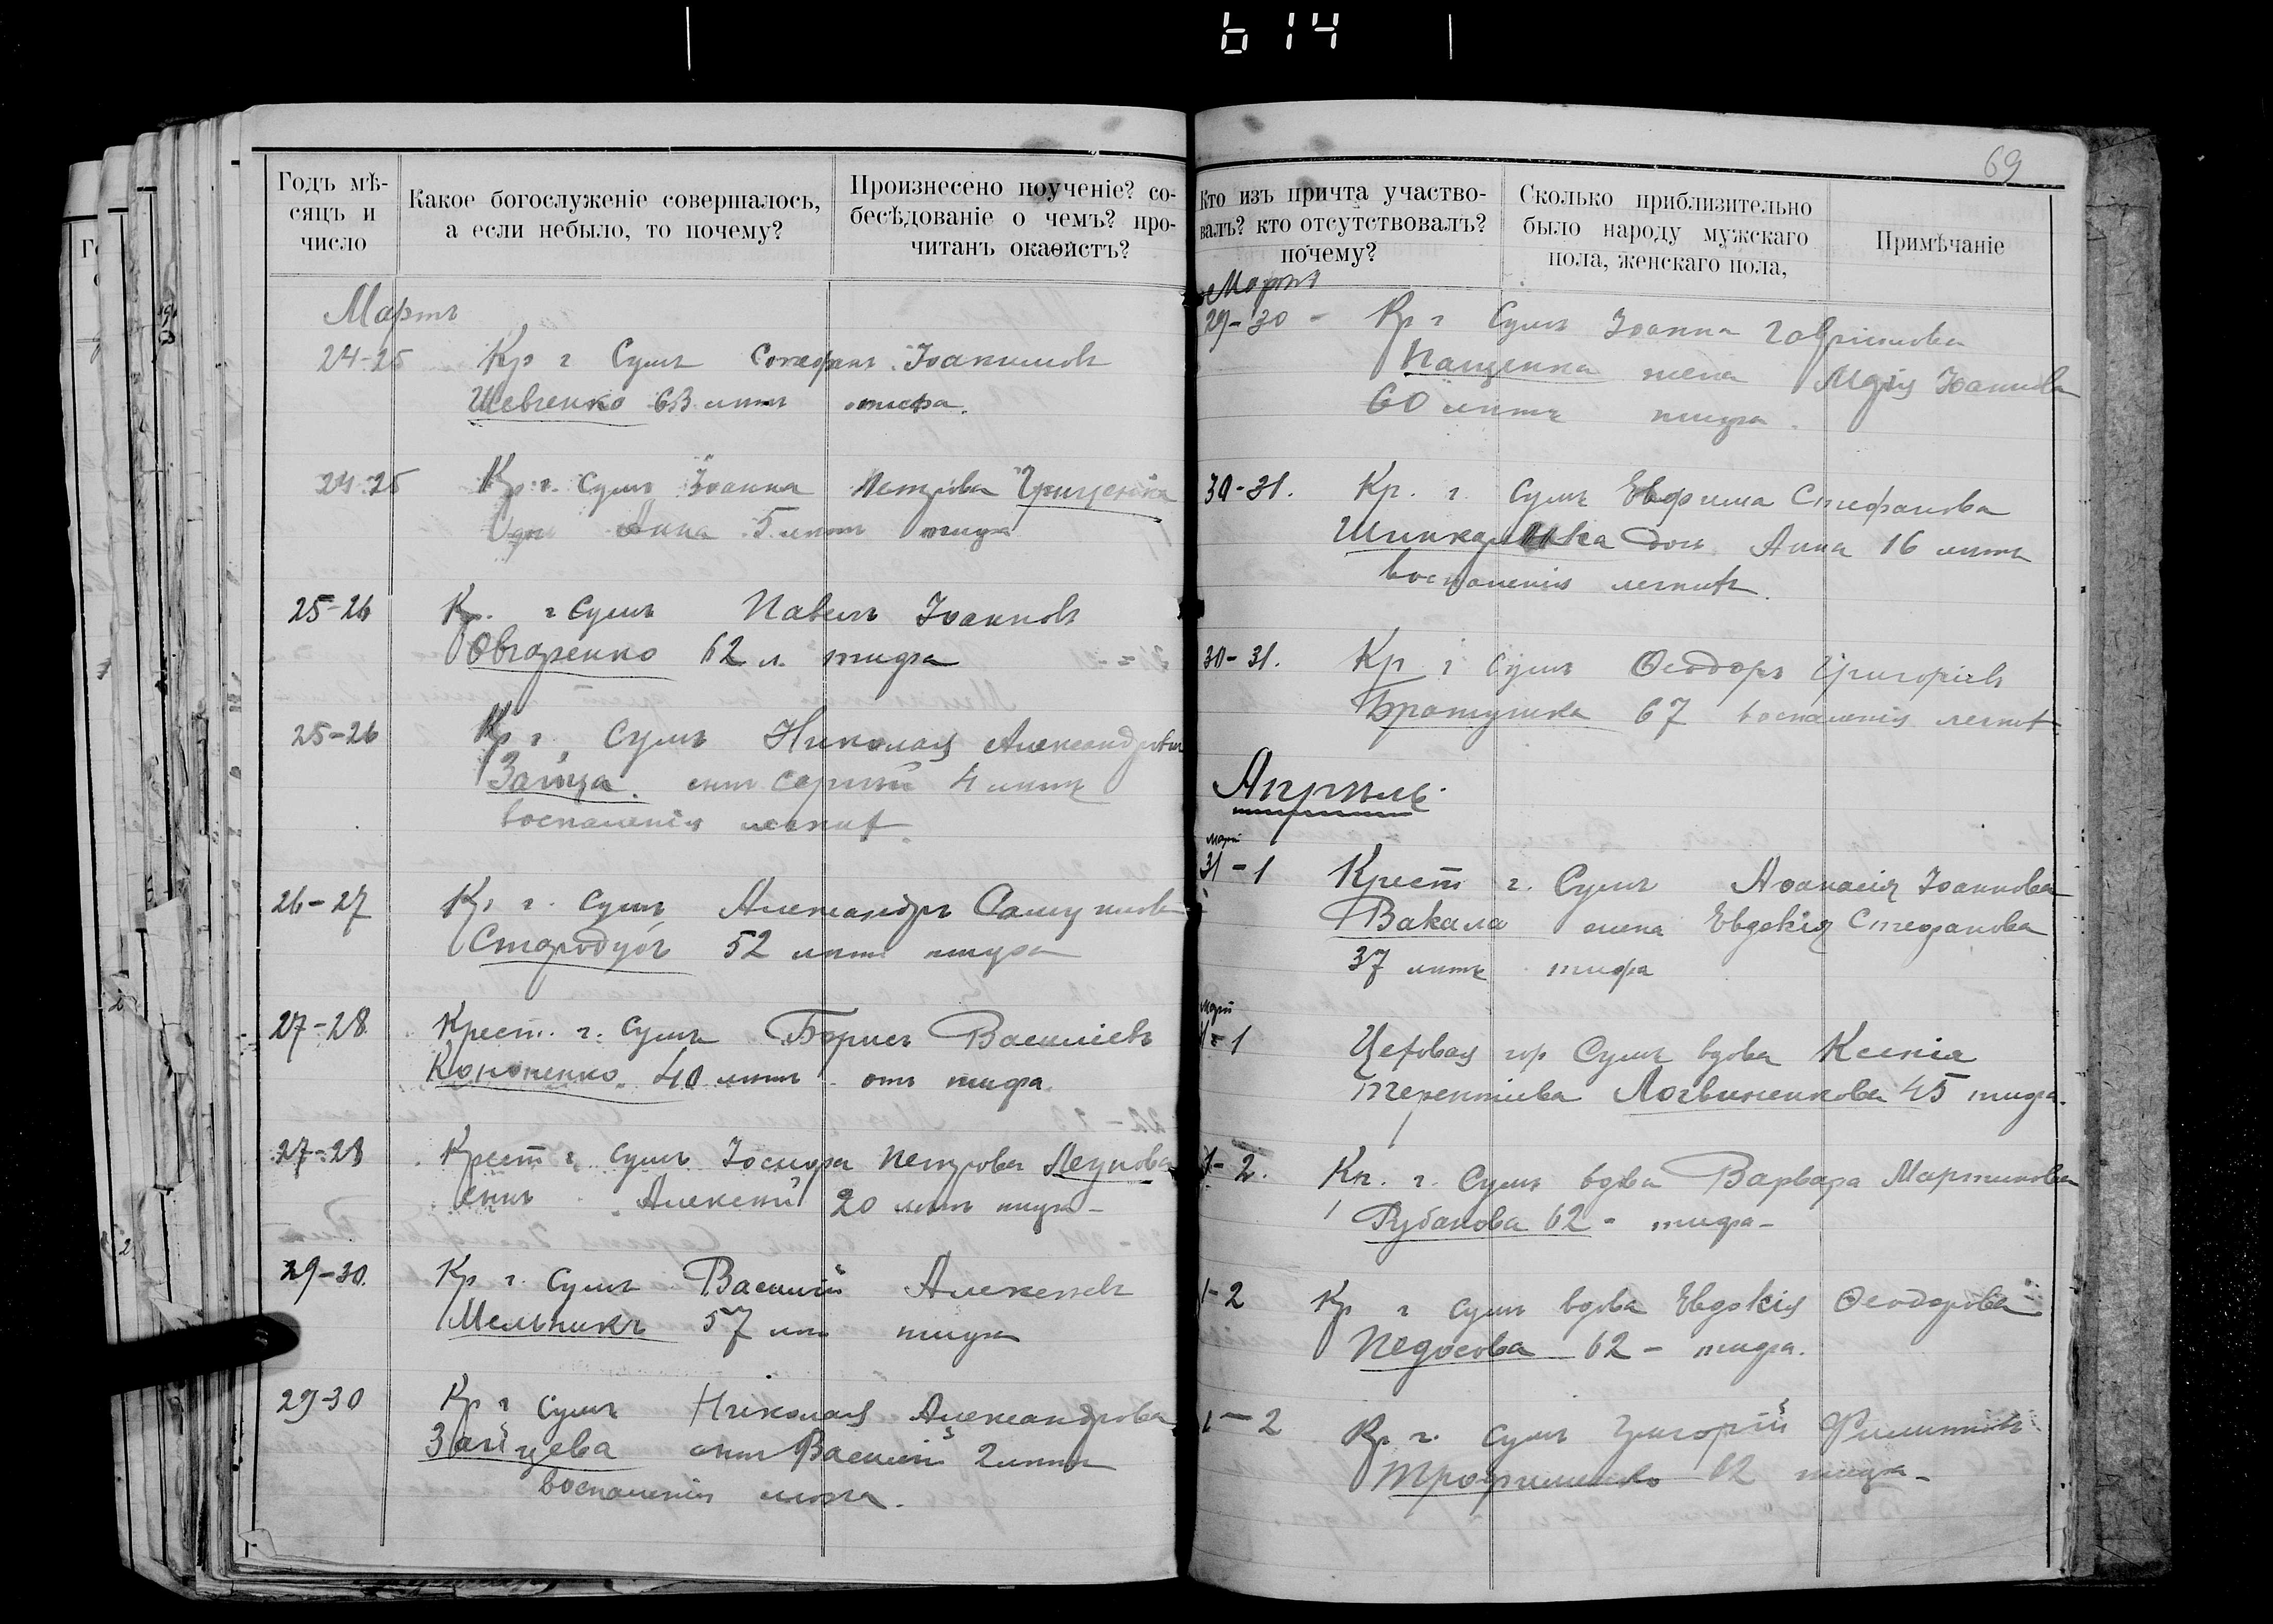 614
Годъ мѣ-
сяцъ и
число
Какое богослуженіе совершалось,
а если небыло, то почему?
Произнесено поученіе? со-
бесѣдованіе о чемъ? про-
читанъ окаѳистъ?
Мартъ
24-25 Кр г Сумъ Стефанъ Іоакимовъ
Шевченко 63 лѣтъ тифа.
24-25 Кр. г. Сумъ Іоанна Петрова Грищенка
Анна 5 лѣтъ тифа
25-26 Кр. г Сумъ Павелъ Іоанновъ
Овчаренко 62 л. тифа
25-26 Кр г. Сумъ Николая Александрова
Зайца. сынъ Сергій 4 лѣтъ
воспаленія легкихъ.
26-27 Кр г. Сумъ Александръ
Стародубъ 52 лѣтъ тифа
27-28 Крест. г. Сумъ Борисъ Василіевъ
Кононенко 40 лѣтъ отъ тифа.
27-28 Крест г. Сумъ Іосифа Петрова
сынъ Алексѣй 20 лѣтъ тифа -
29-30. Кр г. Сумъ Василій Алексѣевъ
Мельникъ 57 лѣт тифа
29-30 Кр г Сумъ Николая Александрова
Зайцева сынъ Василій 2 лѣтъ
воспаленія
69
Кто изъ причта участво-
валъ? кто отсутствовалъ?
почему?
Сколько приблизительно
было народу мужскаго
пола, женскаго пола,
Примѣчаніе
Мартъ
29-30 - Кр г Сумъ Іоанна Гавріилова
Пащенка жена Марія Іоаннова
60 лѣтъ тифа.
30-31. Кр. г. Сумъ Евфима Стефанова
дочь Анна 16 лѣтъ
воспаленія легкихъ.
30-31. Кр г Сумъ Ѳеодоръ Григоріевъ
Братушка 67 воспаленія легких
Апрѣль.
март
31-1 Крест г. Сумъ Аѳанасія Іоаннова
Вакала жена Евдокія Стефанова
37 лѣтъ тифа
март
31-1 Цеховая гор Сумъ вдова Ксенія
Терентіева Логвиненкова 45 тифа.
1-2. Кр. г. Сумъ вдова Варвара Мартинова
Рубанова 62 - тифа -
1-2 Кр г Сумъ вдова Евдокія Ѳеодорова
Педосова 62 - тифа.
1-2 Кр г. Сумъ Григорій Филипповъ
Трофименко 62 тифа -